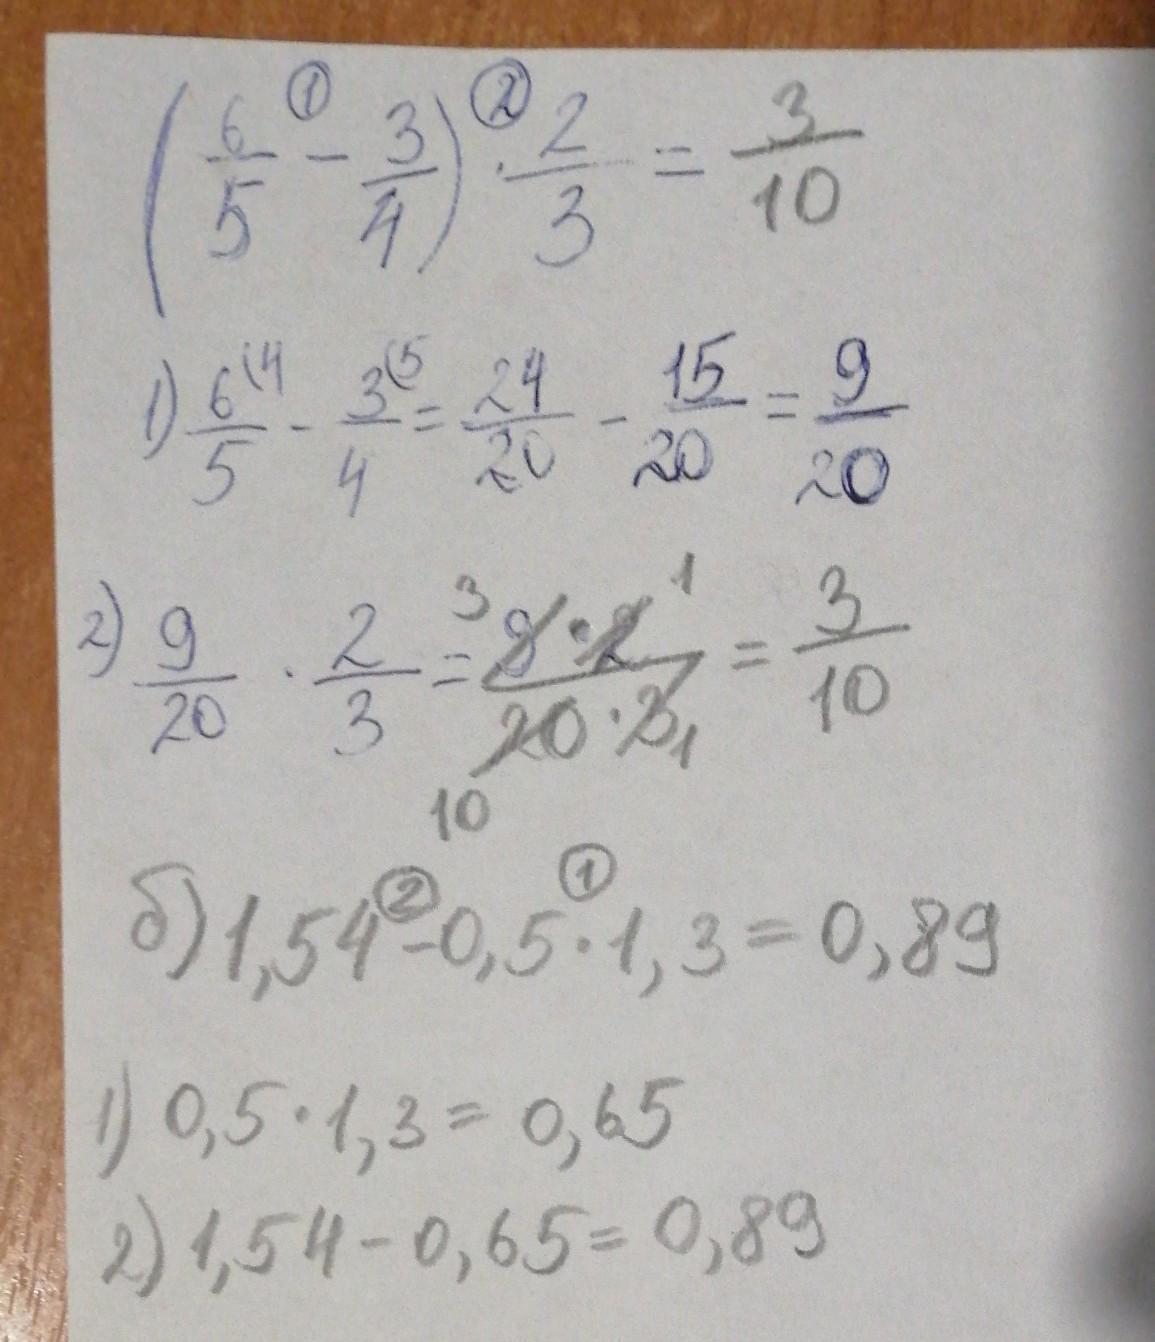 (6/5 ①- 3/4) ②· 2/3 = 3/10
1) 6(4/5 - 3(5/4 = 24/20 - 15/20 = 9/20
2) 9/20 · 2/3 = 3 9·2 1/10 20·3 1 = 3/10
б) 1,54 ②- 0,5 ①· 1,3 = 0,89
1) 0,5 · 1,3 = 0,65
2) 1,54 - 0,65 = 0,89